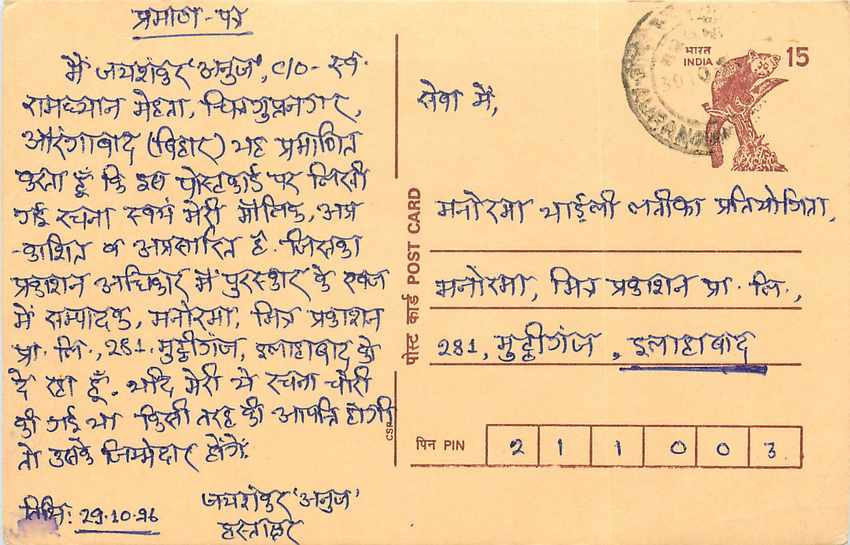 प्रमाण-पत्र
मैं जयशंकर 'अनुज', C/O- स्व.
रामध्यान मेहता, चित्रगुप्तनगर,
औरंगाबाद (बिहार) यह प्रमाणित
करता हूँ कि इस पोस्टकार्ड पर लिखी
गई रचना स्वयं मेरी मौलिक, अप्र
-काशित व अप्रसारित है. जिसका
प्रकाशन अधिकार मैं पुरस्कार के एवज
में सम्पादक, मनोरमा, मित्र प्रकाशन
प्रा. लि., 281, मुट्ठीगंज, इलाहाबाद को
दे रहा हूँ. यदि मेरी ये रचना चोरी
की गई या किसी तरह की आपत्ति होगी
तो उसके जिम्मेदार होंगे.
जयशंकर 'अनुज'
हस्ताक्षर
तिथि: 29.10.96
भारत
INDIA
15
सेवा में,
मनोरमा थाईली लतीका प्रतियोगिता,
मनोरमा, मित्र प्रकाशन प्रा. लि.,
281, मुट्ठीगंज, इलाहाबाद
पोस्ट कार्ड POST CARD
CSP
पिन PIN
2 1 1 0 0 3